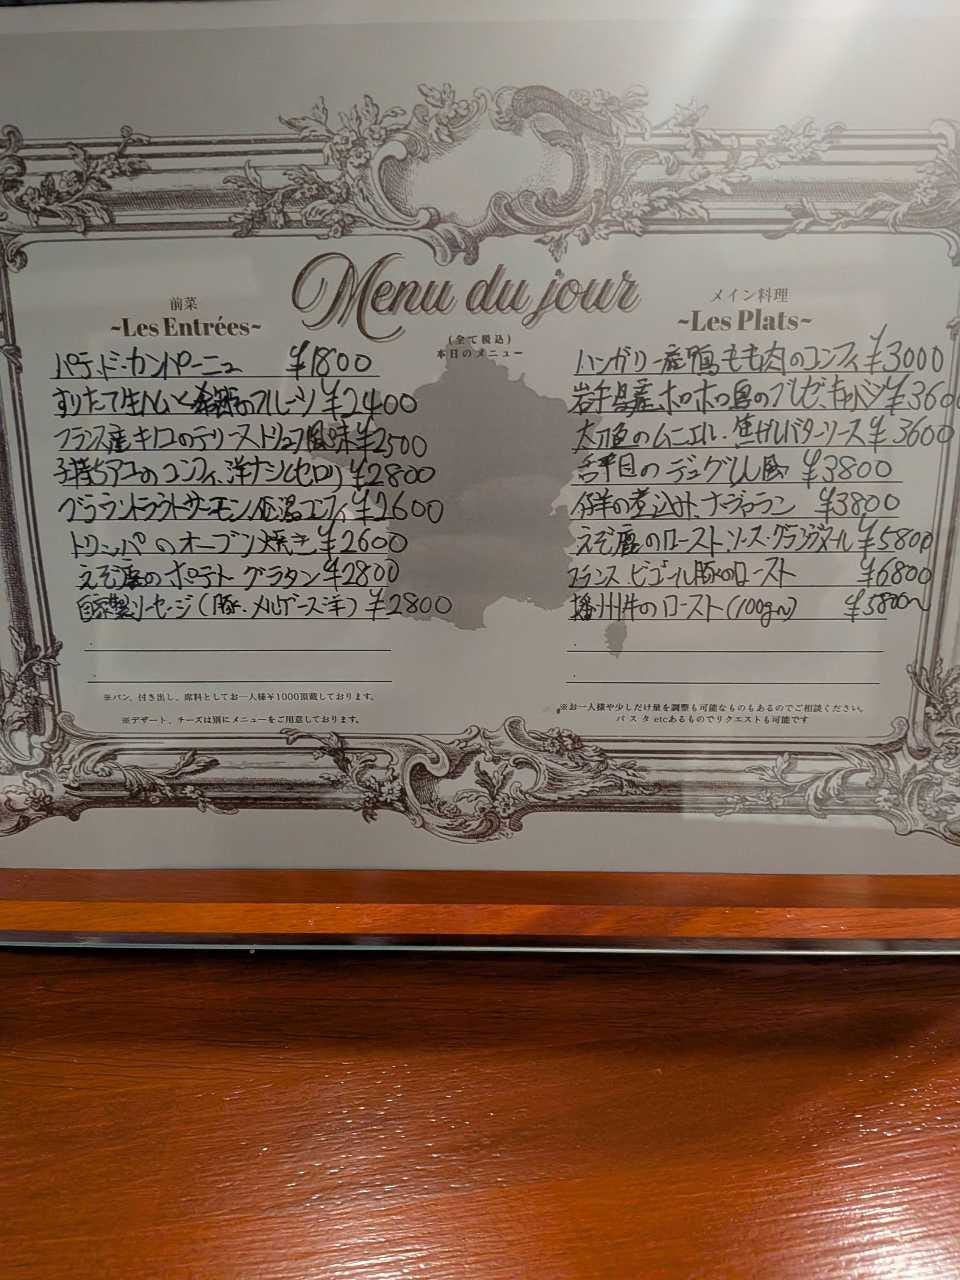 Menu du jour
(全て税込)
本日のメニュー
前菜
~Les Entrées~
パテ・ド・カンパーニュ ¥1800
すりたて生ハムと 季節のフルーツ ¥2400
フランス産キノコのテリーヌ トリュフ風味 ¥2500
子持ちアユのコンフィ、洋ナシとセロリ ¥2800
グラブラックストラウトサーモン 低温コンフィ ¥2600
トリッパのオーブン焼き ¥2600
えぞ鹿のポテトグラタン ¥2800
自家製ソーセージ(豚・メルゲーズ:羊) ¥2800
※パン、付き出し、席料としてお一人様¥1000頂戴しております。
※デザート、チーズは別にメニューをご用意しております。
メイン料理
~Les Plats~
ハンガリー産鴨もも肉のコンフィ ¥3000
岩手県産ホロホロ鳥のブレゼ、キャベツ ¥360
太刀魚のムニエル・焦がしバターソース ¥3600
舌平目のデュグレレ風 ¥3800
仔羊の煮込み、ナヴァラン ¥3800
えぞ鹿のロースト、ソース・グランヴヌール ¥5800
フランス ビゴール豚のロースト ¥6800
播州牛のロースト(100g~) ¥5800~
※お一人様や少しだけ量を調整も可能なものもあるのでご相談ください。
パスタetcあるものでリクエストも可能です